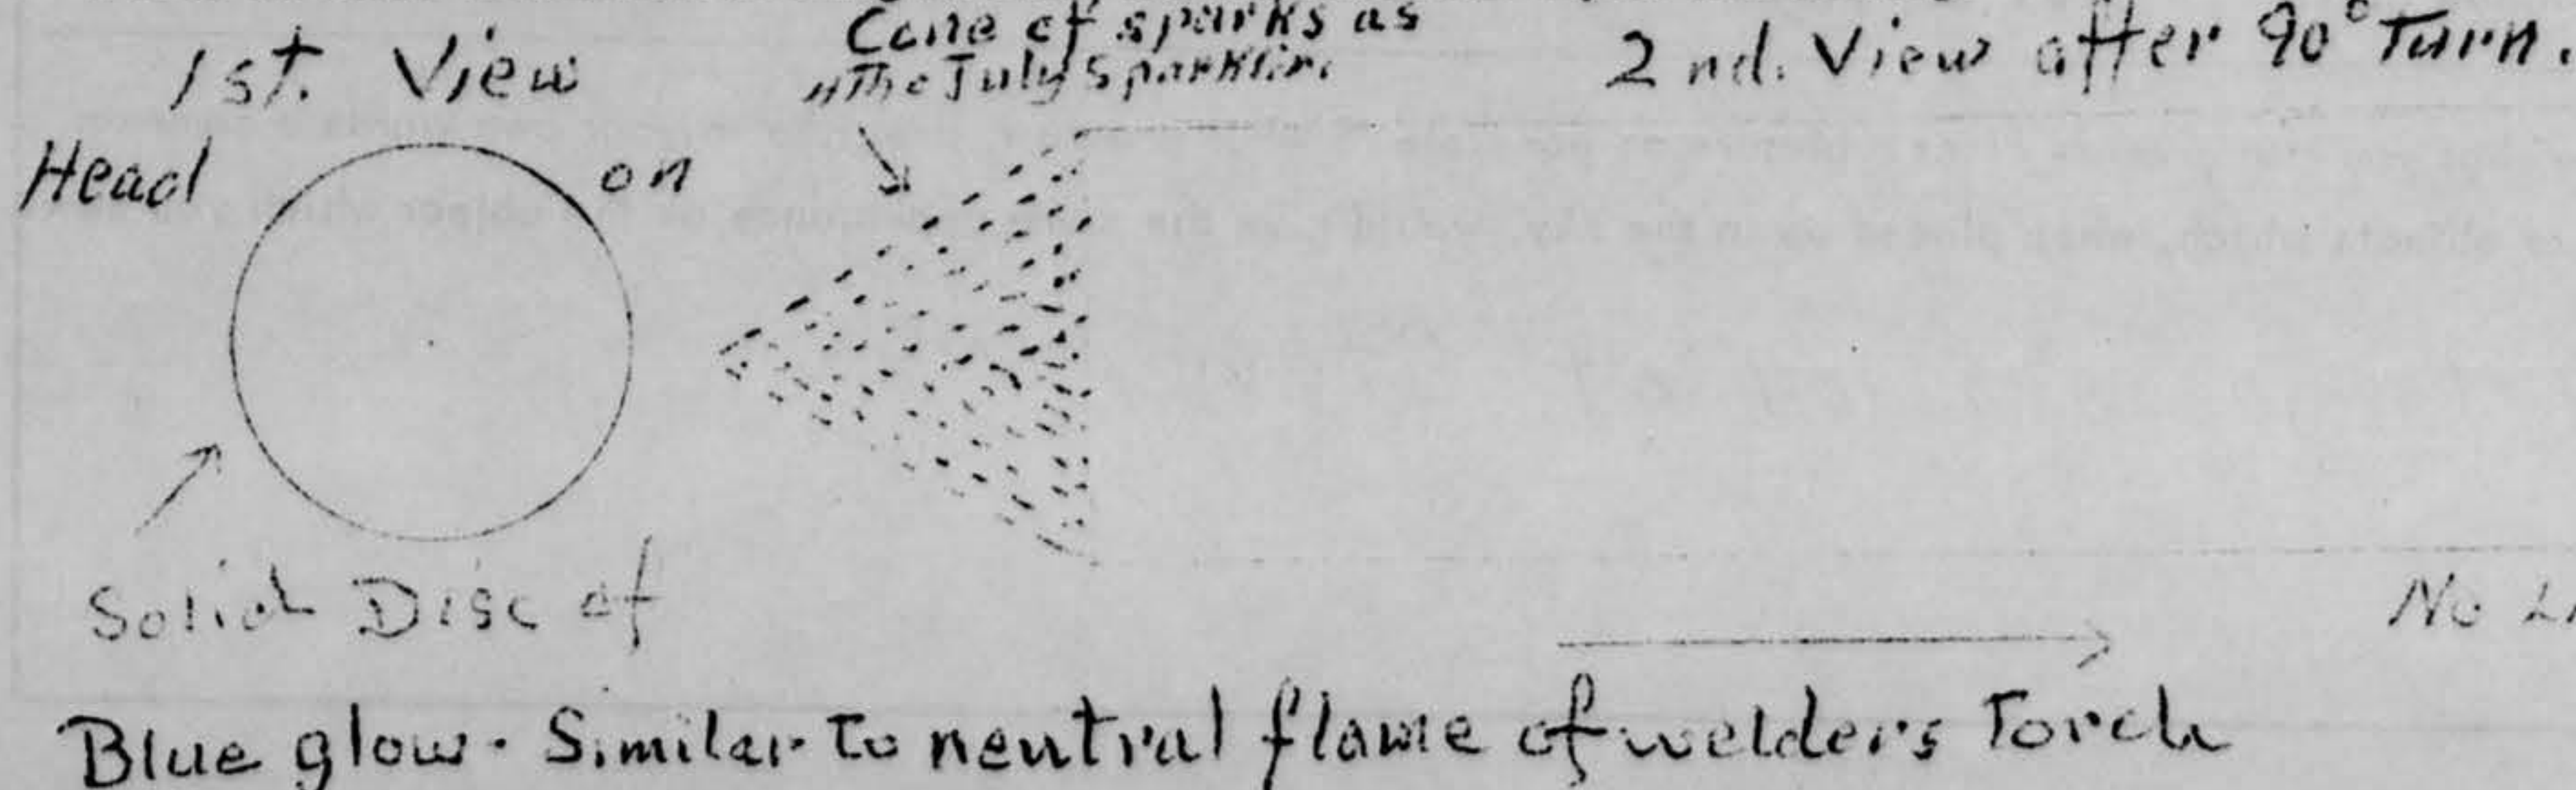 1st. View
Cone of sparks as
"The July Sparkler.
2nd. View after 90° Turn.
Head on
Solid Disc of
No
Blue glow. Similar to neutral flame of welders Torch